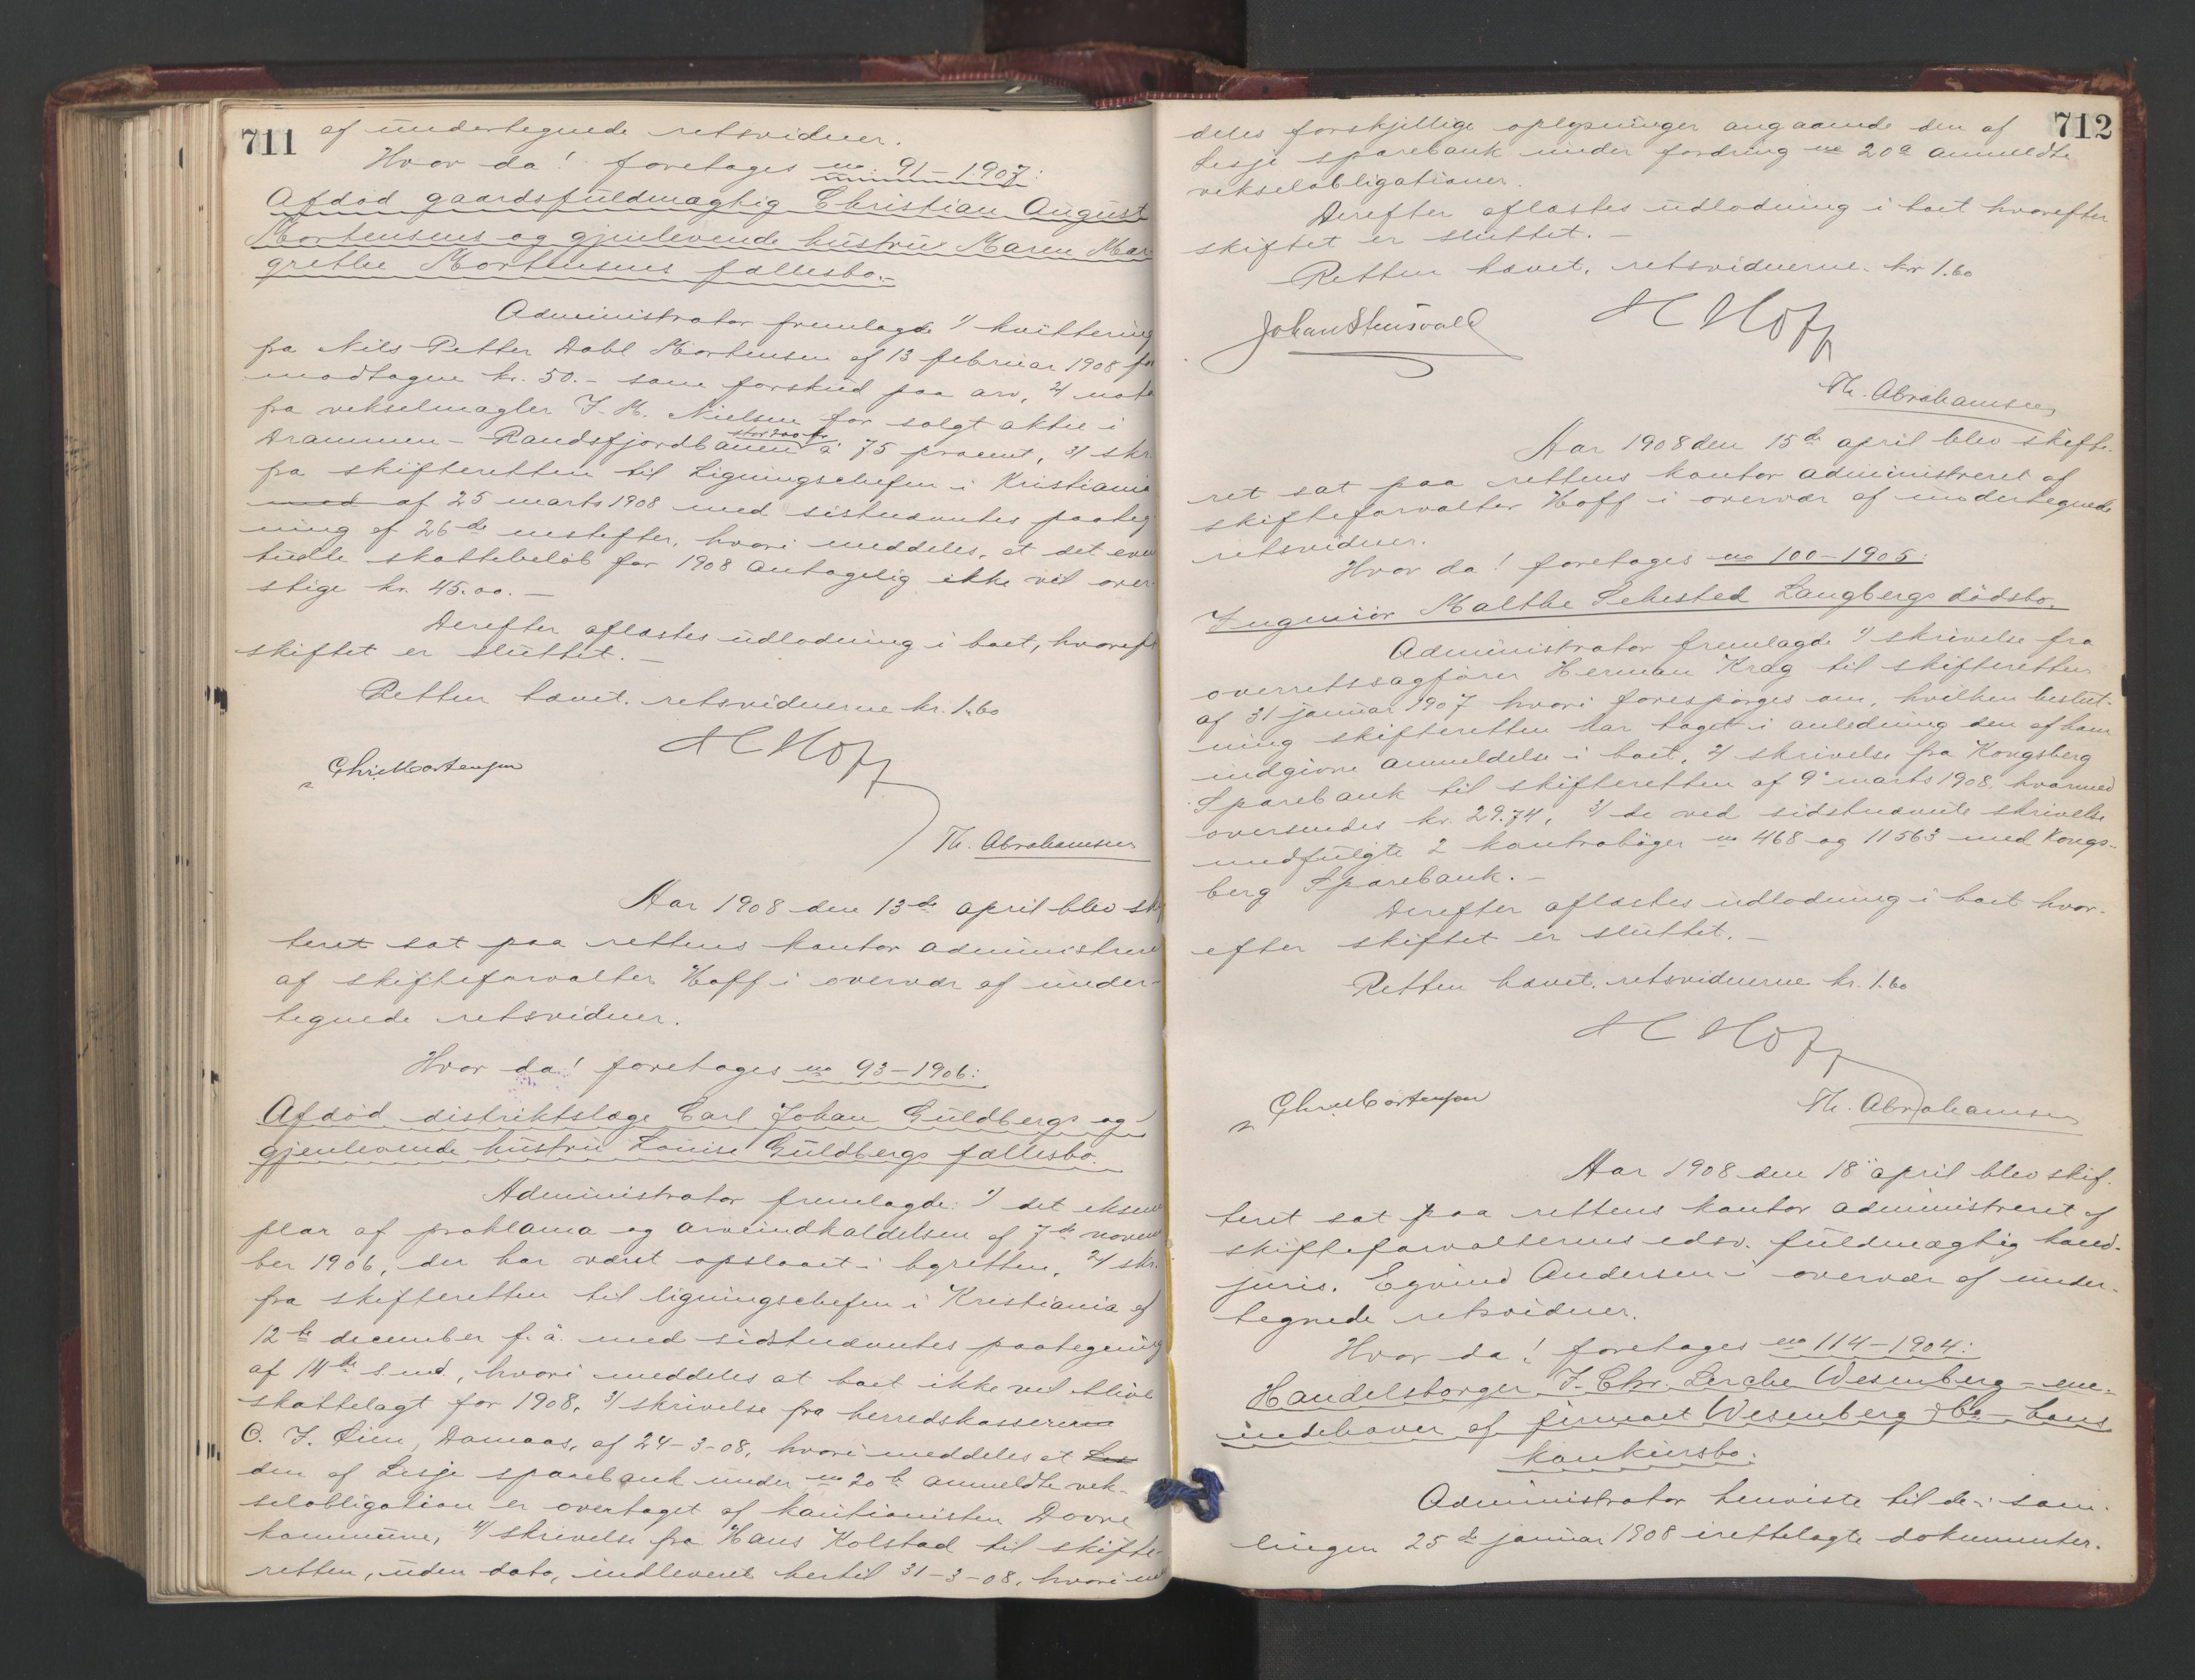 711
af undertegnede retsvidner.
Hvor da! foretages no 91-1907:
Afdød gaardsfuldmægtig Christian August
Mortensens og gjenlevende hustru Maren Mar
grethe Mortensens fællesbo.-
Administrator fremlagde 1/ kvittering
fra Nils Petter Dahl Mortensen af 13 februar 1908 for
modtagne kr. 50.- som forskud paa arv, 2/ nota
fra vekselmægler J. M. Nielsen for solgt aktie i
stor 200 kr
Drammen-Randsfjordbanen à 75 procent, 3/ skr.
fra skifteretten til Ligningschefen i Kristiania
med af 25 marts 1908 med sistnævntes paateg
ning af 26de næstefter, hvori meddeles, at det even
tuelle skattebeløb for 1908 antagelig ikke vil over-
stige kr. 45.00.-
Derefter aflæstes udlodning i boet, hvoreft
skiftet er sluttet.-
Retten hævet. retsvidnerne kr. 1.60
H Hoff
Chr. Mortensen
Th. Abrahamsen
Aar 1908 den 13de april blev skif
teret sat paa rettens kontor administrere
af skifteforvalter Hoff i overvær af under-
tegnede retsvidner.
Hvor da! foretages no 93-1906:
Afdød distriktslæge Carl Johan Guldbergs og
gjenlevende hustru Louise Guldbergs fællesbo.
Administrator fremlagde: 1/ det eksem
plar af proklama og arveindkaldelsen af 7de novem
ber 1906, der har været opslaaet i bgretten, 2/ skr.
fra skifteretten til ligningschefen i Kristiania af
12te december f. å. med sidstnævntes paategning
af 14de s. md., hvori meddeles at boet ikke vil blive
skattelagt for 1908, 3/ skrivelse fra herredskasserer
O. J. Øien, Domaas, af 24-3-08, hvori meddeles at Les
den af Lesje sparebank under no 20b anmeldte vek-
selobligation er overtaget af kautionisten Dovre
kommune, 4/ skrivelse fra Hans Kolstad til skifte-
retten, uden dato, indleveret hertil 31-3-08, hvori med
712
deles forskjellige oplysninger angaaende den af
Lesje sparebank under fordring no 20a anmeldte
vekselobligationer.
Derefter aflæstes udlodning i boet hvorefter
skiftet er sluttet.-
Retten hævet. retsvidnerne kr 1.60
Johan Stensvold H Hoff
Th. Abrahamsen
Aar 1908 den 15de april blev skifte-
ret sat paa rettens kontor administreret af
skifteforvalter Hoff i overvær af undertegnede
retsvidner.
Hvor da! foretages no 100-1905:
Ingeniør Malthe Sehested Langbergs dødsbo.
Administrator fremlagde 1/ skrivelse fra
overretssagfører Herman Krag til skifteretten
af 31 januar 1907 hvori forespørges om, hvilken beslut-
ning skifteretten har taget i anledning den af ham
indgivne anmeldelse i boet, 2/ skrivelse fra Kongsberg
Sparebank til skifteretten af 9' marts 1908, hvormed
oversendes kr. 29.74, 3/ de ved sidstnævnte skrivelse
medfulgte 2 kontrabøger no 468 og 11563 med Kongs-
berg Sparebank.-
Derefter aflæstes udlodning i boet hvor-
efter skiftet er sluttet.-
Retten hævet. retsvidnerne kr. 1.60
H Hoff
Chr. Mortensen
Th. Abrahamsen
Aar 1908 den 18' april blev skif-
teret sat paa rettens kontor administreret af
skifteforvalterens edsv. fuldmægtig cand.
juris. Eyvind Andersen i overvær af under-
tegnede retsvidner.
Hvor da! foretages no 114-1904:
Handelsborger J. Chr. Lerche Wesenberg - ene-
indehaver af firmaet Wesenberg & Co - hans
konkursbo.
Administrator henviste til de i sam-
lingen 25de januar 1908 irettelagte dokumenter.